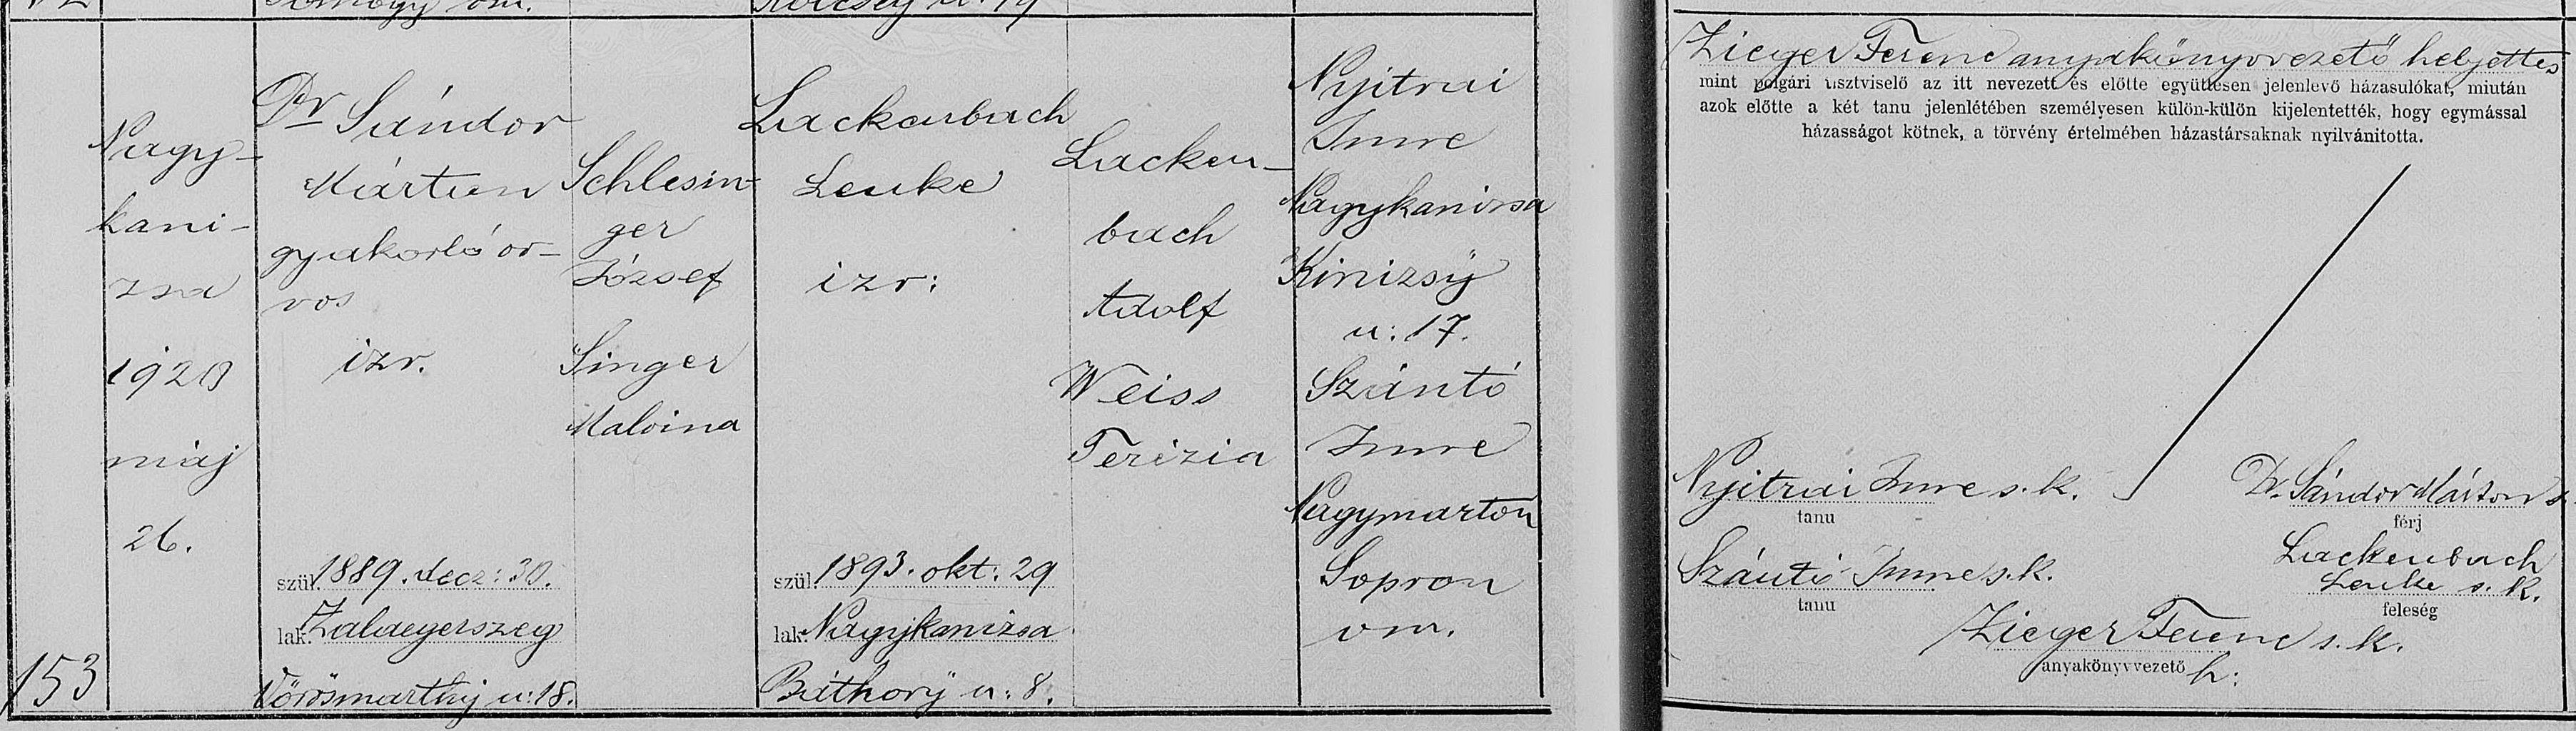 153
Nagy-
kani-
zsa
1920
máj
26.
Dr Sándor
Márton
gyakorló or-
vos
izr.
szül. 1889. decz: 30.
lak. Zalaegerszeg
Vörösmarthy u: 18.
Schlesin-
ger
József
Singer
Malvina
Lackenbach
Lenke
izr:
szül. 1893. okt. 29
lak. Nagykanizsa
Báthory u: 8.
Lacken-
bach
Adolf
Weiss
Terézia
Nyitrai
Imre
Nagykanizsa
Kinizsy
u: 17.
Szántó
Imre
Nagymarton
Sopron
vm.
Zieger Ferenc anyakönyvvezető helyettes
mint polgári tisztviselő az itt nevezett és előtte együttesen jelenlevő házasulókat, miután
azok előtte a két tanu jelenlétében személyesen külön-külön kijelentették, hogy egymással
házasságot kötnek, a törvény értelmében házastársaknak nyilvánitotta.
Nyitrai Imre s. k.
tanu
Dr. Sándor Márton s.
férj
Szántó Imre s. k.
tanu
Lackenbach
Lenke s. k.
feleség
Zieger Ferenc s. k.
anyakönyvvezető h: